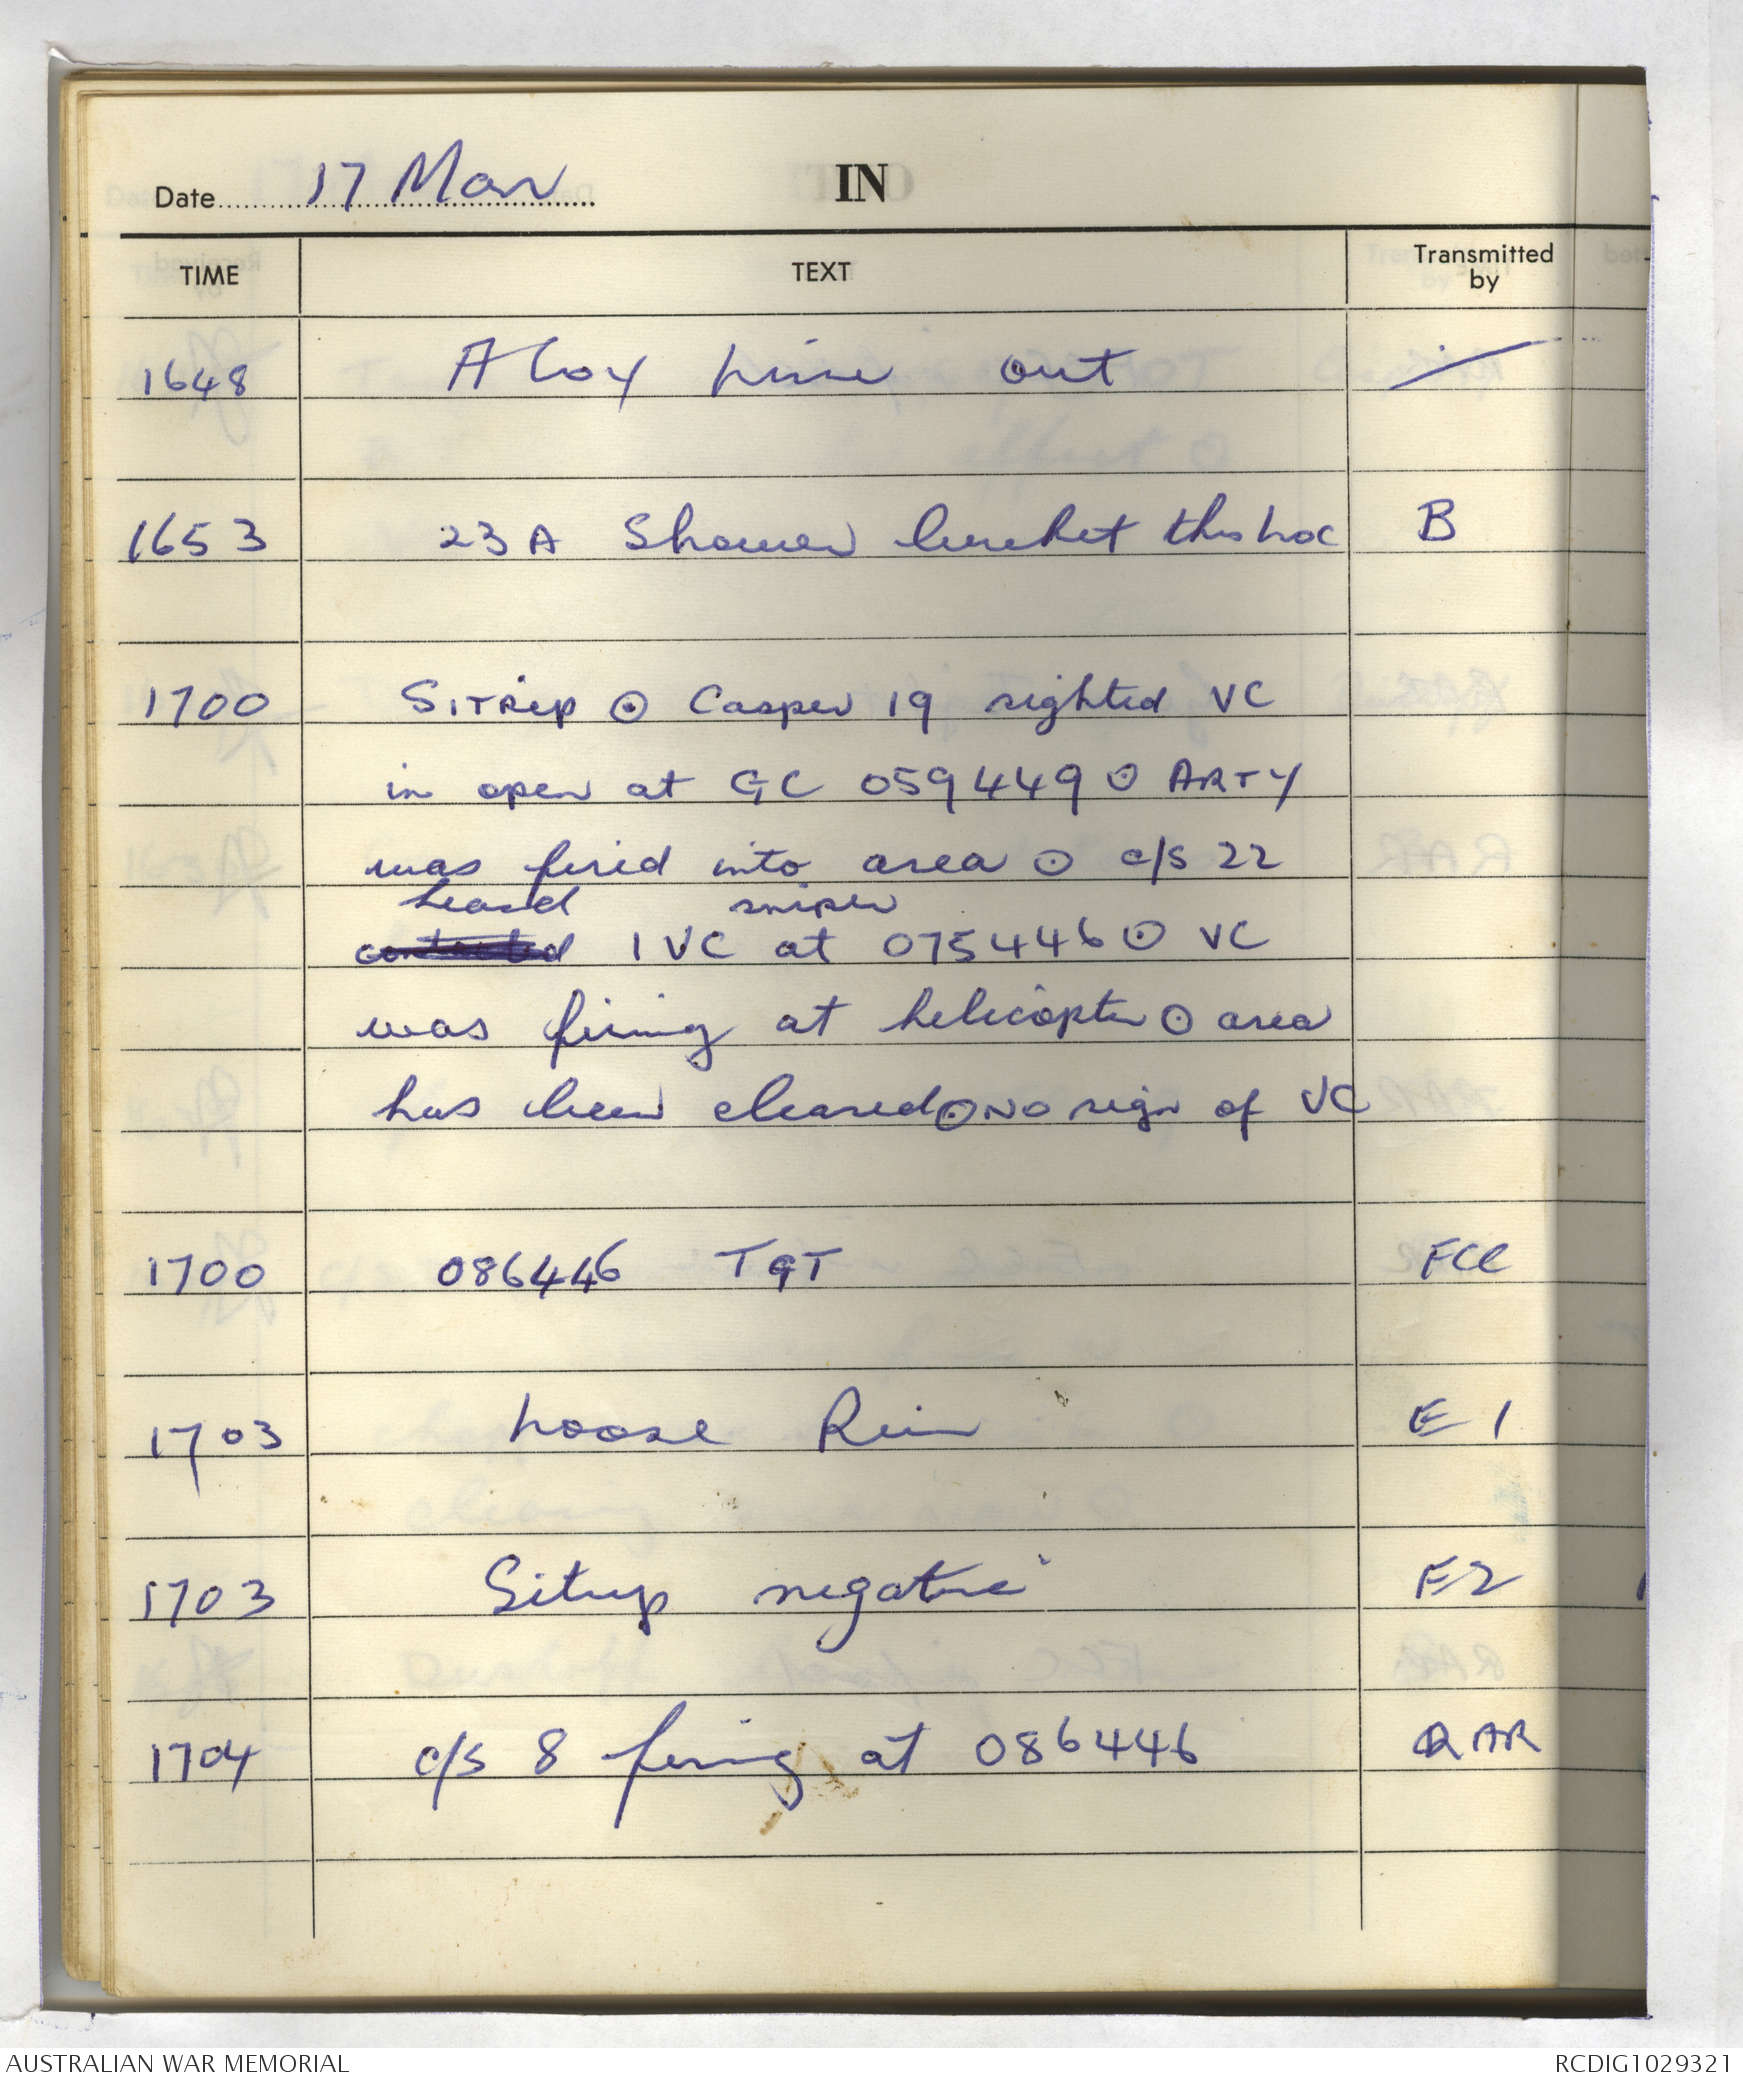 Date 17 Mar
IN
TIME TEXT Transmitted by
1648 A Coy line out
1653 23A Shower bucket this loc B
1700 SITREP ⊙ Casper 19 sighted VC
in open at GC 059449 ⊙ ARTY
was fired into area ⊙ c/s 22
heard sniper
contacted 1 VC at 075446 ⊙ VC
was firing at helicopter ⊙ area
has been cleared ⊙ NO sign of VC
1700 086446 TGT FCC
1703 Loose Rein E1
1703 Sitrep negative E2
1704 c/s 8 firing at 086446 RAR
AUSTRALIAN WAR MEMORIAL RCDIG1029321